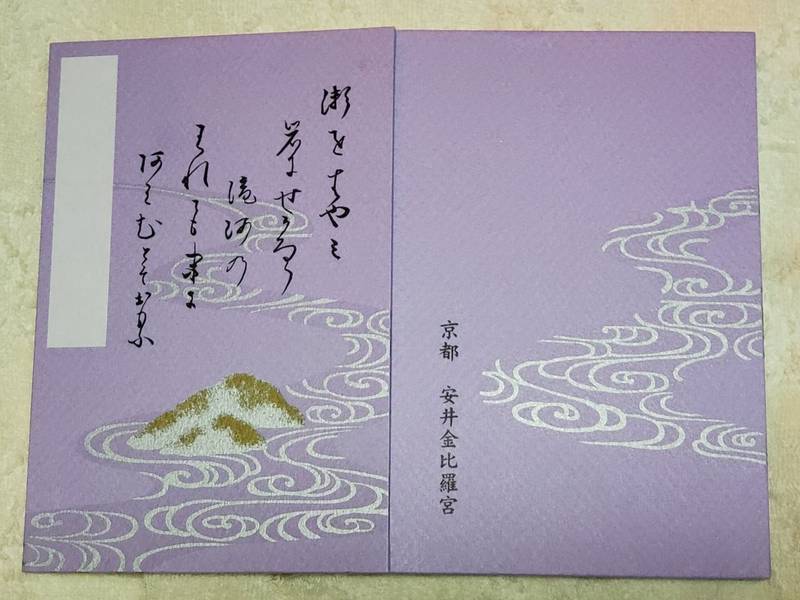 瀬をはやミ
岩にせかるゝ
滝河の
われても末に
阿はむとそおもふ
京都 安井金比羅宮